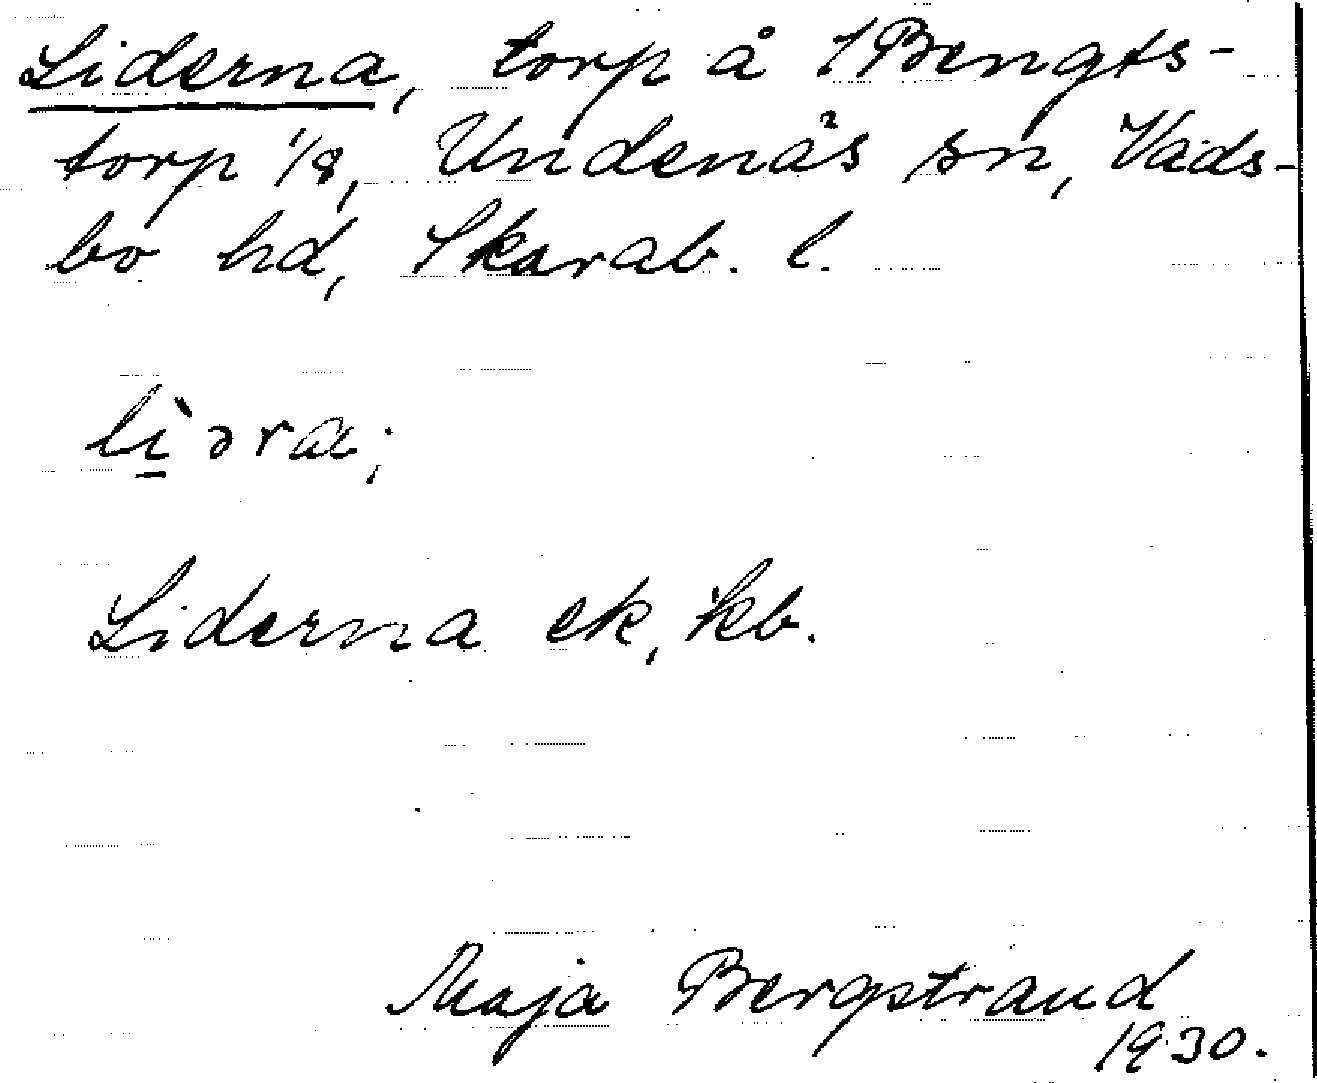 Liderna, torp å 1 Bengts-
torp 1/8, Undenäs sn, Vads-
bo hd, Skarab. l.
lì̱əra;
Liderna ek, kb.
Maja Bergstrand
1930.